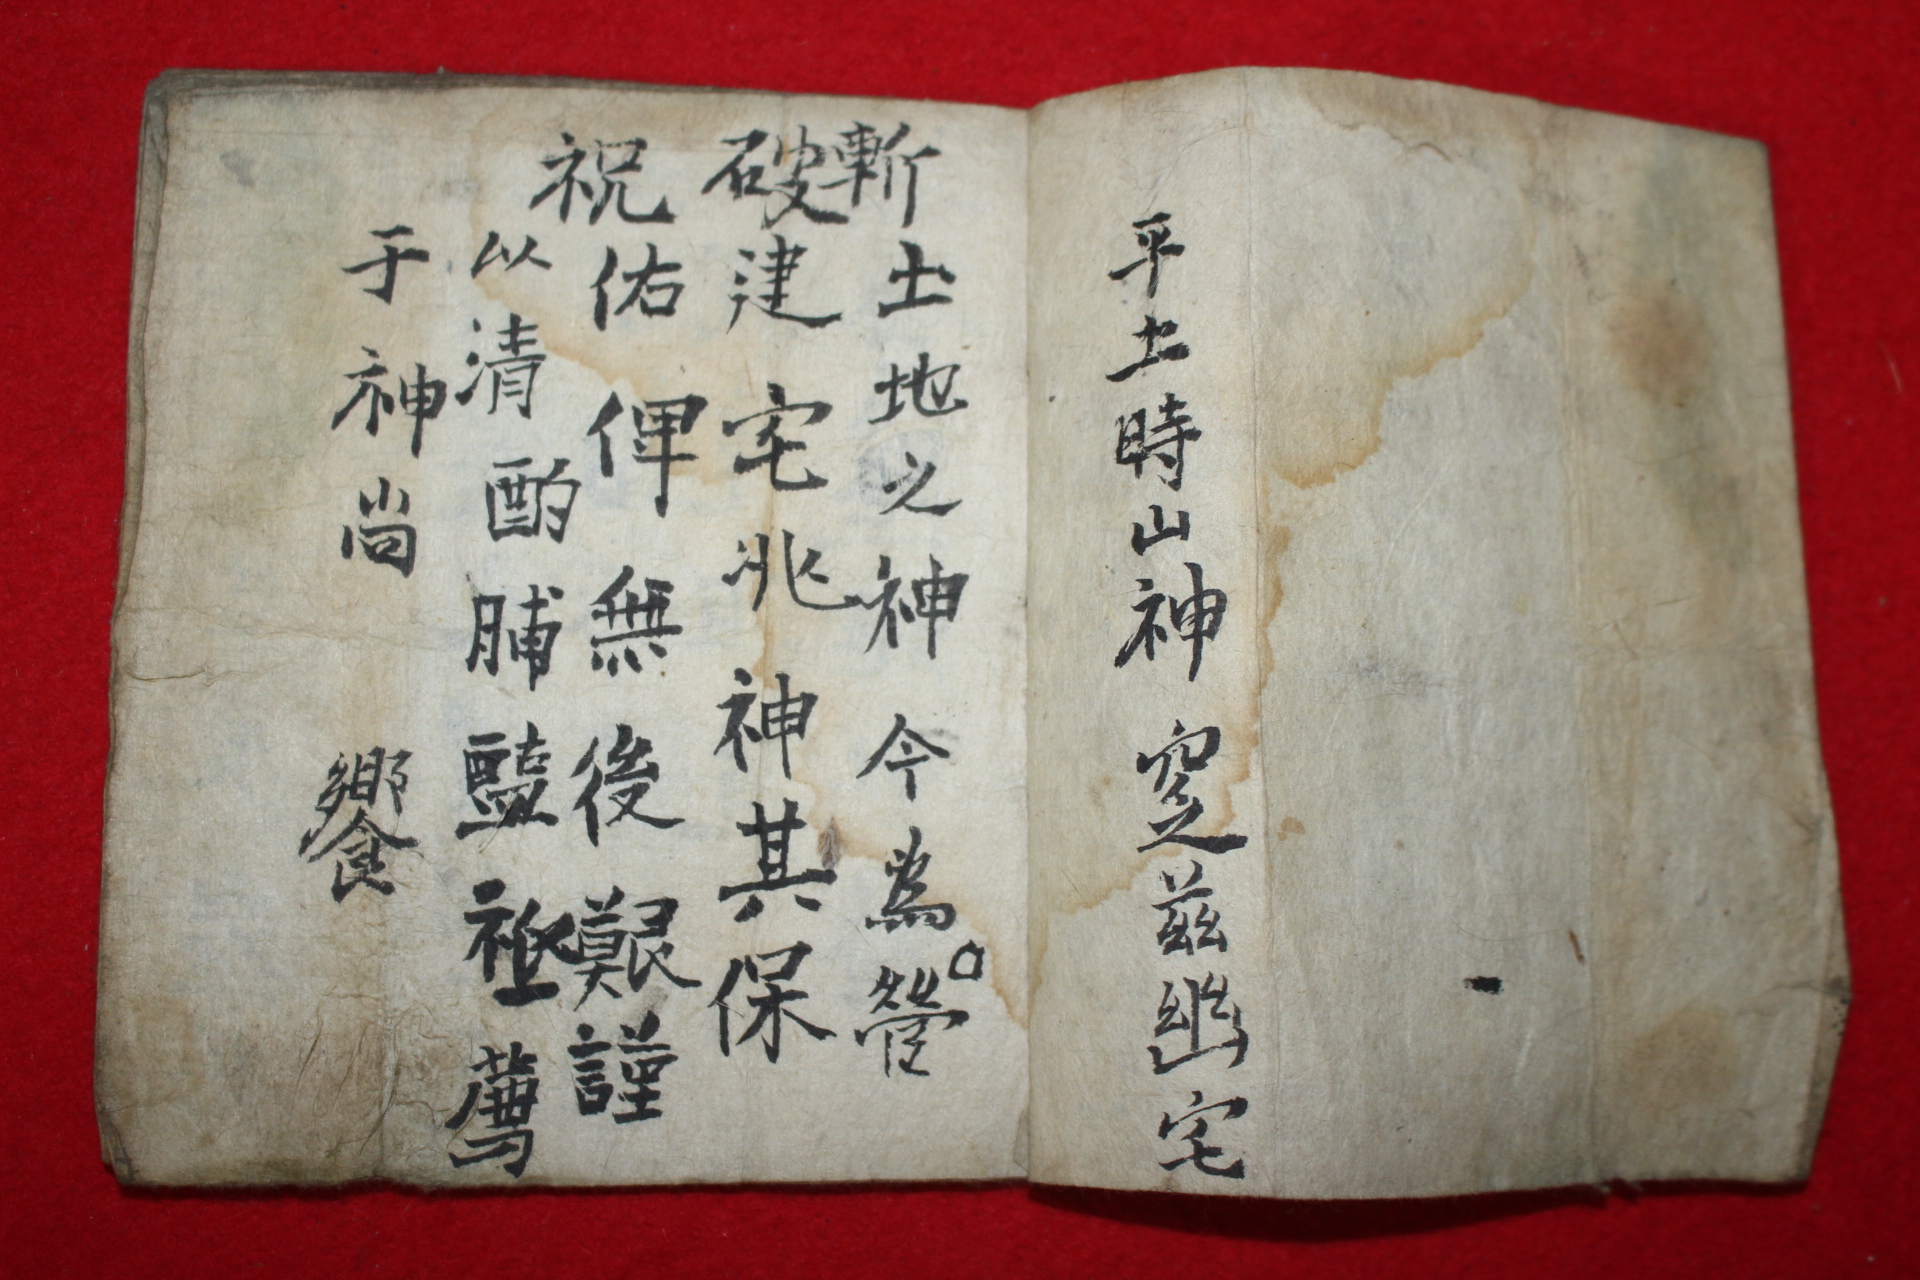 平土時山神 窆茲幽宅
斬土地之神今爲營
破建宅兆神其保
祝佑俾無後艱謹
以清酌脯醢祗薦
于神尚 饗